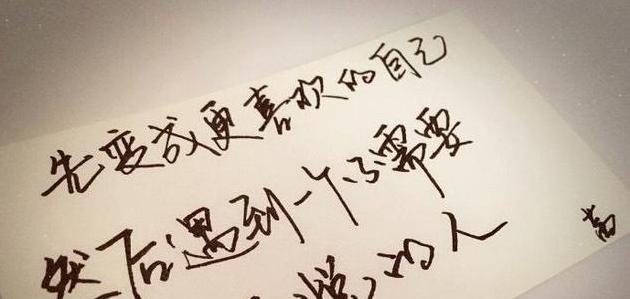 先变成更喜欢的自己
然后遇到一个不需要
悦的人